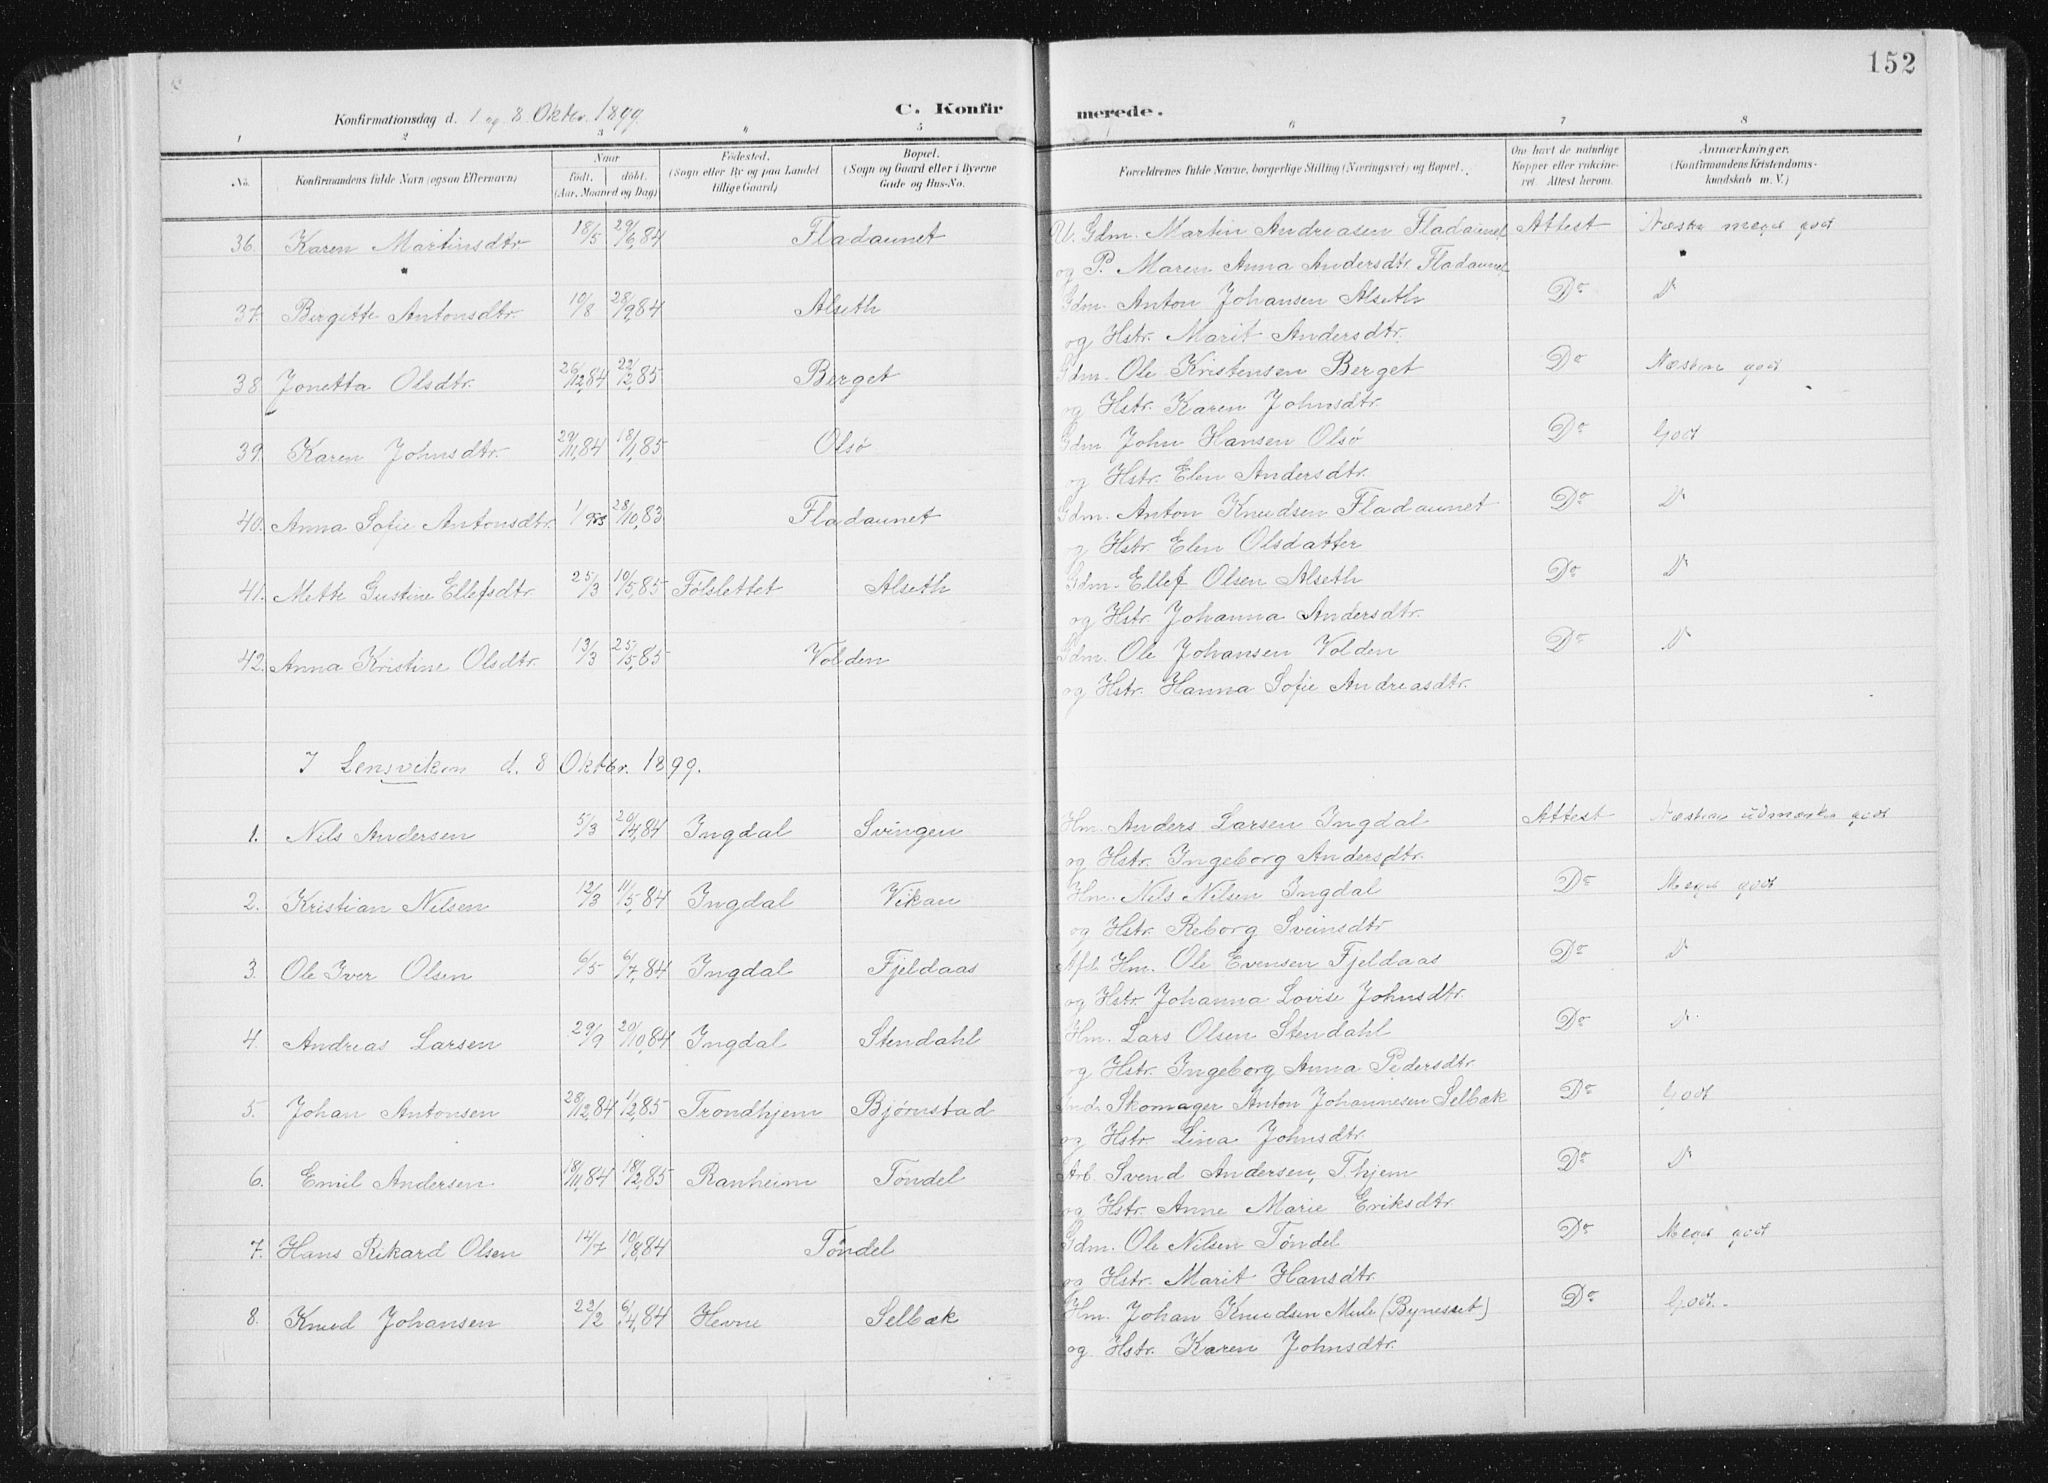 152
Konfirmationsdag d. 1 og 8 Oktbr. 1899. C. Konfirmerede.
1 2 3 4 5 6 7 8
No. Konfirmandens fulde Navn (ogsaa Efternavn) Naar født. døbt. (Aar, Maaned og Dag) Fødested. (Sogn eller By og paa Landet tillige Gaard) Bopæl. (Sogn og Gaard eller i Byerne Gade og Hus-No. Forældrenes fulde Navne, borgerlige Stilling (Næringsvei) og Bopæl. Om havt de naturlige Kopper eller vakcineret. Attest herom. Anmærkninger. (Konfirmandens Kristendomskundskab m. V.)
36. Karen Martinsdtr 18/5 29/6,84 Fladaunet U. Gdm. Martin Andreasen Fladaunet Attest Næsten meget godt
og P. Maren Anna Andersdtr. Fladaunet
37. Birgitte Antonsdtr. 10/8 28/9,84 Alseth Gdm. Anton Johansen Alseth Do D
og Hstr. Marit Andersdtr.
38. Jonetta Olsdtr. 26/12,84 22/2,85 Berget Gdm. Ole Kristensen Berget Do Næsten godt
og Hstr. Karen Johnsdtr.
39. Karen Johnsdtr. 29/11,84 18/1,85 Olsø Gdm. John Hansen Olsø Do Godt
og Hstr. Elen Andersdtr.
40. Anna Sofie Antonsdtr. 28/10,83. Fladaunet Gdm. Anton Knudsen Fladaunet Do D
og Hstr. Elen Olsdatter
41. Mette Gustine Ellefsdtr. 25/3 10/5,85 Følslettet Alseth Gdm. Ellef Olsen Alseth Do D
og Hstr. Johanna Andersdtr.
42. Anna Kristine Olsdtr. 13/3 25/5,85 Volden Gdm. Ole Johansen Volden Do D
og Hstr. Hanna Sofie Andreasdtr.
I Lensviken d. 8 Oktbr. 1899.
1. Nils Andersen 5/3 20/4,84 Ingdal Svingen Hm. Anders Larsen Ingdal Attest Næsten udmærket godt
og Hstr. Ingeborg Andersdtr.
2. Kristian Nilsen 12/3 11/5,84 Ingdal Vikan Hm. Nils Nilsen Ingdal Do Meget godt
og Hstr. Reborg Sveinsdtr
3. Ole Iver Olsen 6/5 6/7,84 Ingdal Fjeldaas Afd. Hm. Ole Evensen Fjeldaas Do D
og Hstr. Johanna Lovise Johnsdtr.
4. Andreas Larsen 29/9 20/10,84 Ingdal Stendahl Hm. Lars Olsen Stendahl Do D
og Hstr. Ingeborg Anna Pedersdtr.
5. Johan Antonsen 28/12,84 1/2,85 Trondhjem Bjørnstad Skomager Anton Johannesen Selbæk Do Godt
og Hstr. Lina Johnsdtr.
6. Emil Andersen. 18/11,84 18/2,85 Ranheim Tøndel Arb. Svend Andersen, T.hjem Do D
og Hstr. Anne Marie Eriksdtr.
7. Hans Rikard Olsen 14/7 10/8,84 Tøndel Gdm. Ole Nilsen Tøndel Do Meget godt
og Hstr. Marit Hansdtr.
8. Knud Johansen 22/2 6/4,84 Hevne Selbæk Hm. Johan Knudsen Mule (Bynesset) Do Godt.
og Hstr. Karen Johnsdtr.